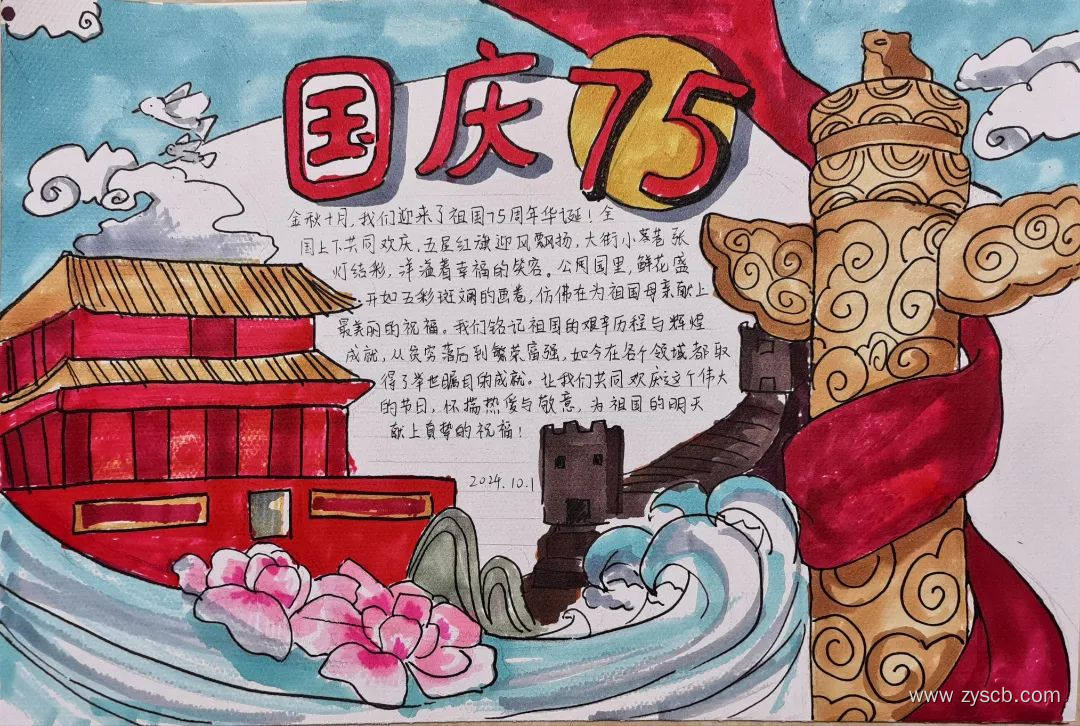 国庆75
金秋十月,我们迎来了祖国75周年华诞!全
国上下共同欢庆,五星红旗迎风飘扬,大街小巷张
灯结彩,洋溢着幸福的笑容。公园里,鲜花盛
开如五彩斑斓的画卷,仿佛在为祖国母亲献上
最美丽的祝福。我们铭记祖国的艰辛历程与辉煌
成就,从贫穷落后到繁荣富强,如今在各个领域都取
得了举世瞩目的成就。让我们共同欢庆这个伟大
的节日,怀揣热爱与敬意,为祖国的明天
献上真挚的祝福!
2024.10.1
www.zyscb.com